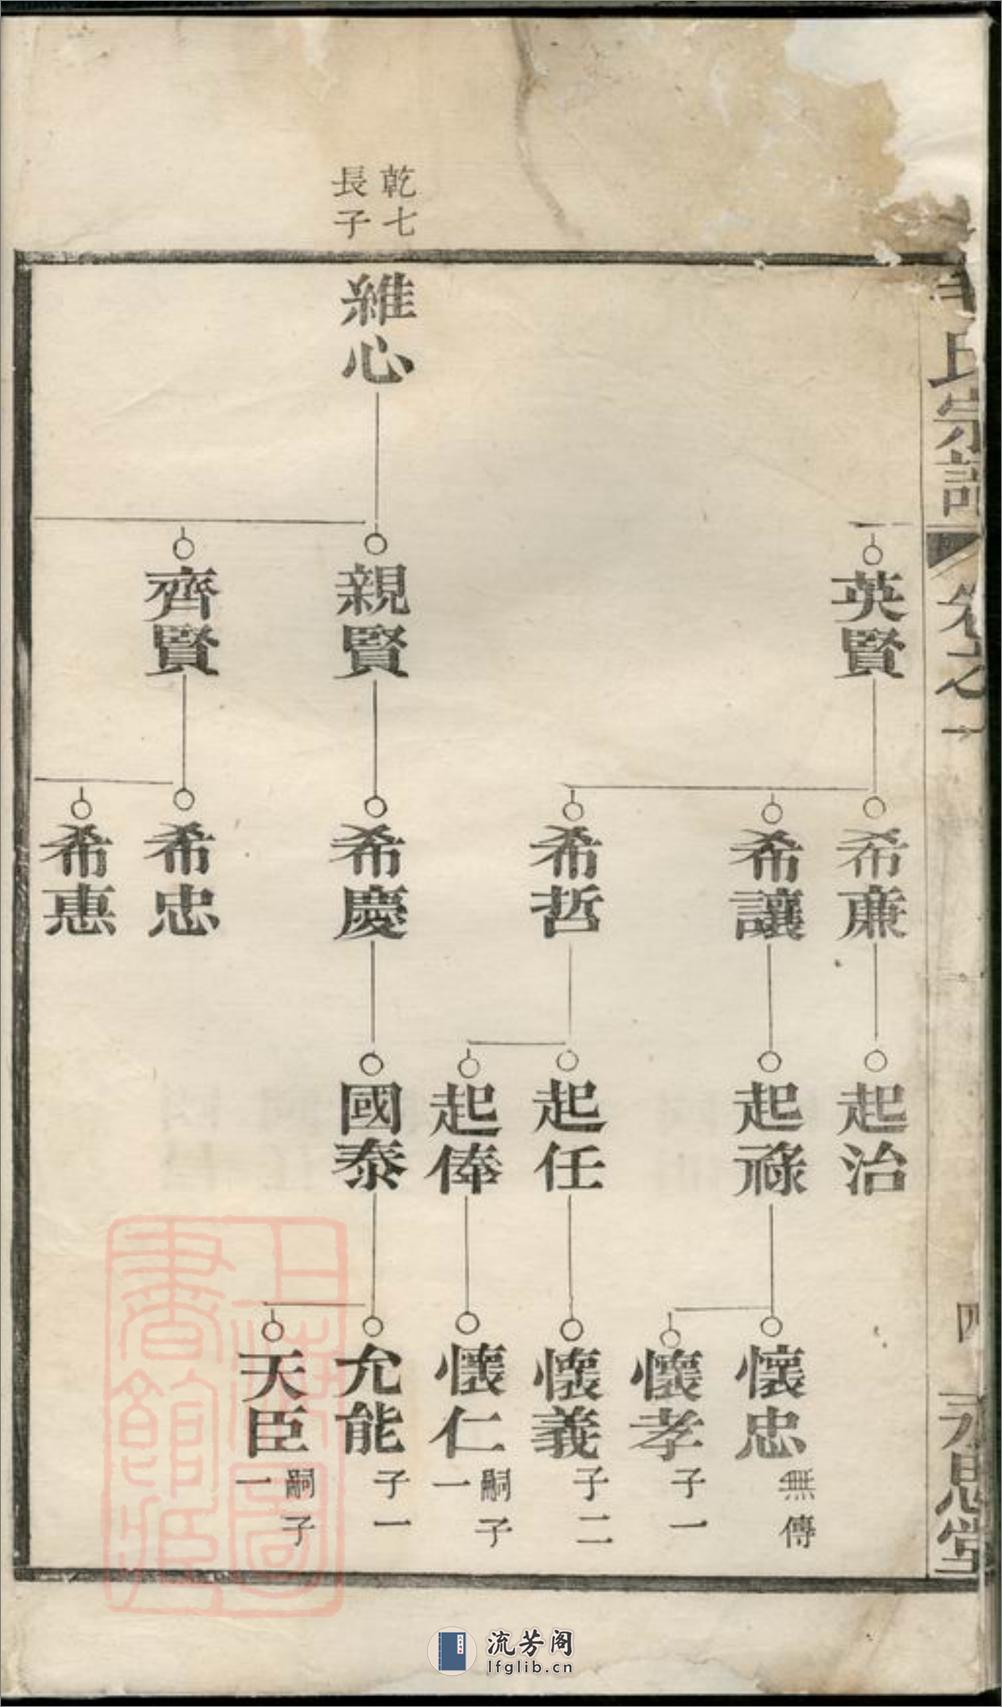 氏宗譜
卷之一
四
永思堂
英賢
希亷
起治
希讓
起祿
懷忠
無傳
懷孝
子一
希哲
起任
懷義
子二
起俸
懷仁
嗣子
一
乾七
長子
維心
親賢
希慶
國泰
允能
子一
天臣
嗣子
一
齊賢
希忠
希惠
上海圖
書館藏
流芳阁
lfglib.cn